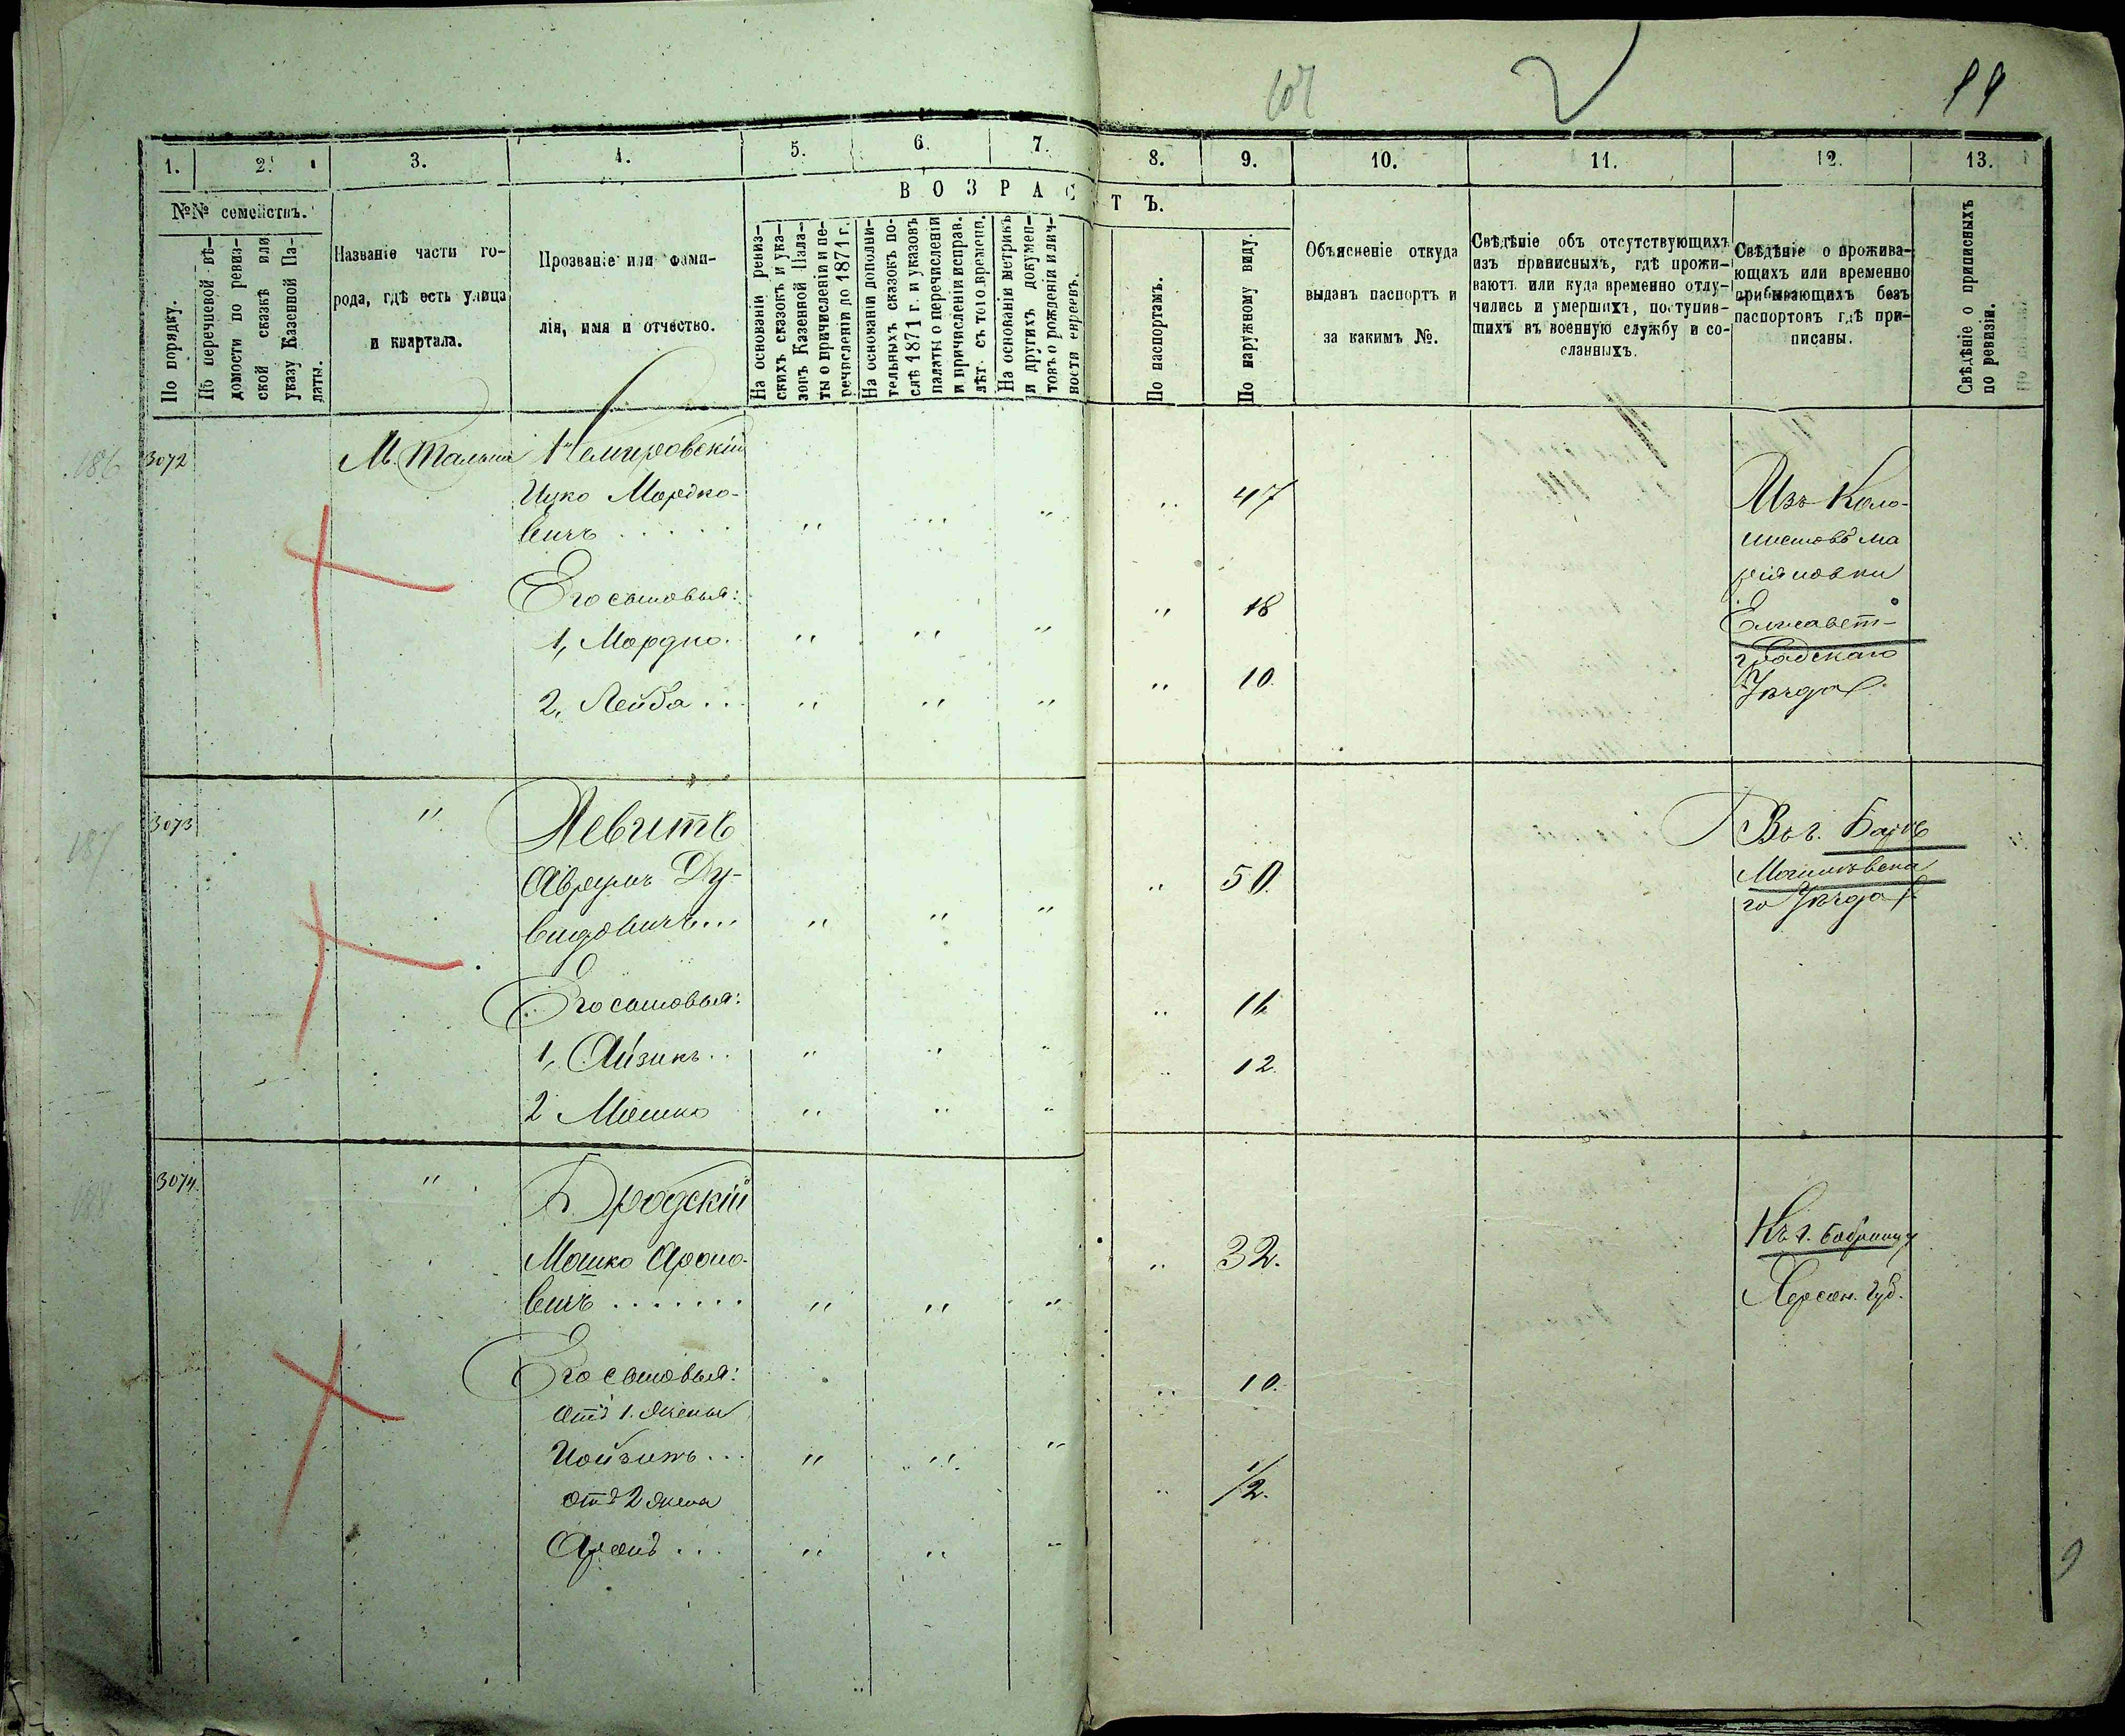 2
99
1.
2.
3.
4.
5.
6.
7.
8.
9.
10.
11.
12.
13.
№№ семействъ.
По порядку.
По перечневой вѣ-
домости по ревиз-
ской сказкѣ или
указу Казенной Па-
латы.
Названіе части го-
рода, гдѣ есть улица
и квартала.
Прозваніе или фами-
лія, имя и отчество.
ВОЗРАСТЪ.
На основаніи ревиз-
скихъ сказокъ и ука-
зовъ Казенной Пала-
ты о причисленіи и пе-
речисленіи до 1871 г.
На основаніи дополни-
тельныхъ сказокъ по-
слѣ 1871 г. и указовъ
палаты о перечисленіи
и причисленіи исправ.
лѣт. съ того времени.
На основаніи метрикъ
и другихъ докумен-
товъ о рожденіи и лич-
ности евреевъ.
По паспортамъ.
По наружному виду.
Объясненіе откуда
выданъ паспортъ и
за какимъ №.
Свѣдѣніе объ отсутствующихъ
изъ приписныхъ, гдѣ прожи-
ваютъ или куда временно отлу-
чились и умершихъ, поступив-
шихъ въ военную службу и со-
сланныхъ.
Свѣдѣніе о прожива-
ющихъ или временно
прибывающихъ безъ
паспортовъ гдѣ при-
писаны.
Свѣдѣніе о приписныхъ
по ревизіи.
186
3072
М. Тальное
Немировскій
Ицко Мордко-
вичъ . . . . .
47
Его сыновья:
1, Мордко.
18
2, Лейба . . .
10.
Изъ Коло-
нистовъ Ма
ріяновки
Елисавет-
градскаго
Уѣзда.
187
3073
"
Левитъ
Аврумъ Ду-
видовичъ...
50.
Его сыновья:
1, Айзикъ . .
16
2 Мошко
12.
Въ г. Баръ
Могилевска
го Уѣзда
188
3074.
"
Бродскій
Мошко Ароно-
вичъ . . . . . . .
32.
Его сыновья:
отъ 1. жены
10.
отъ 2 жены
Аронъ . . .
1/2.
Къ г. Бобринцу
Херсон. губ.